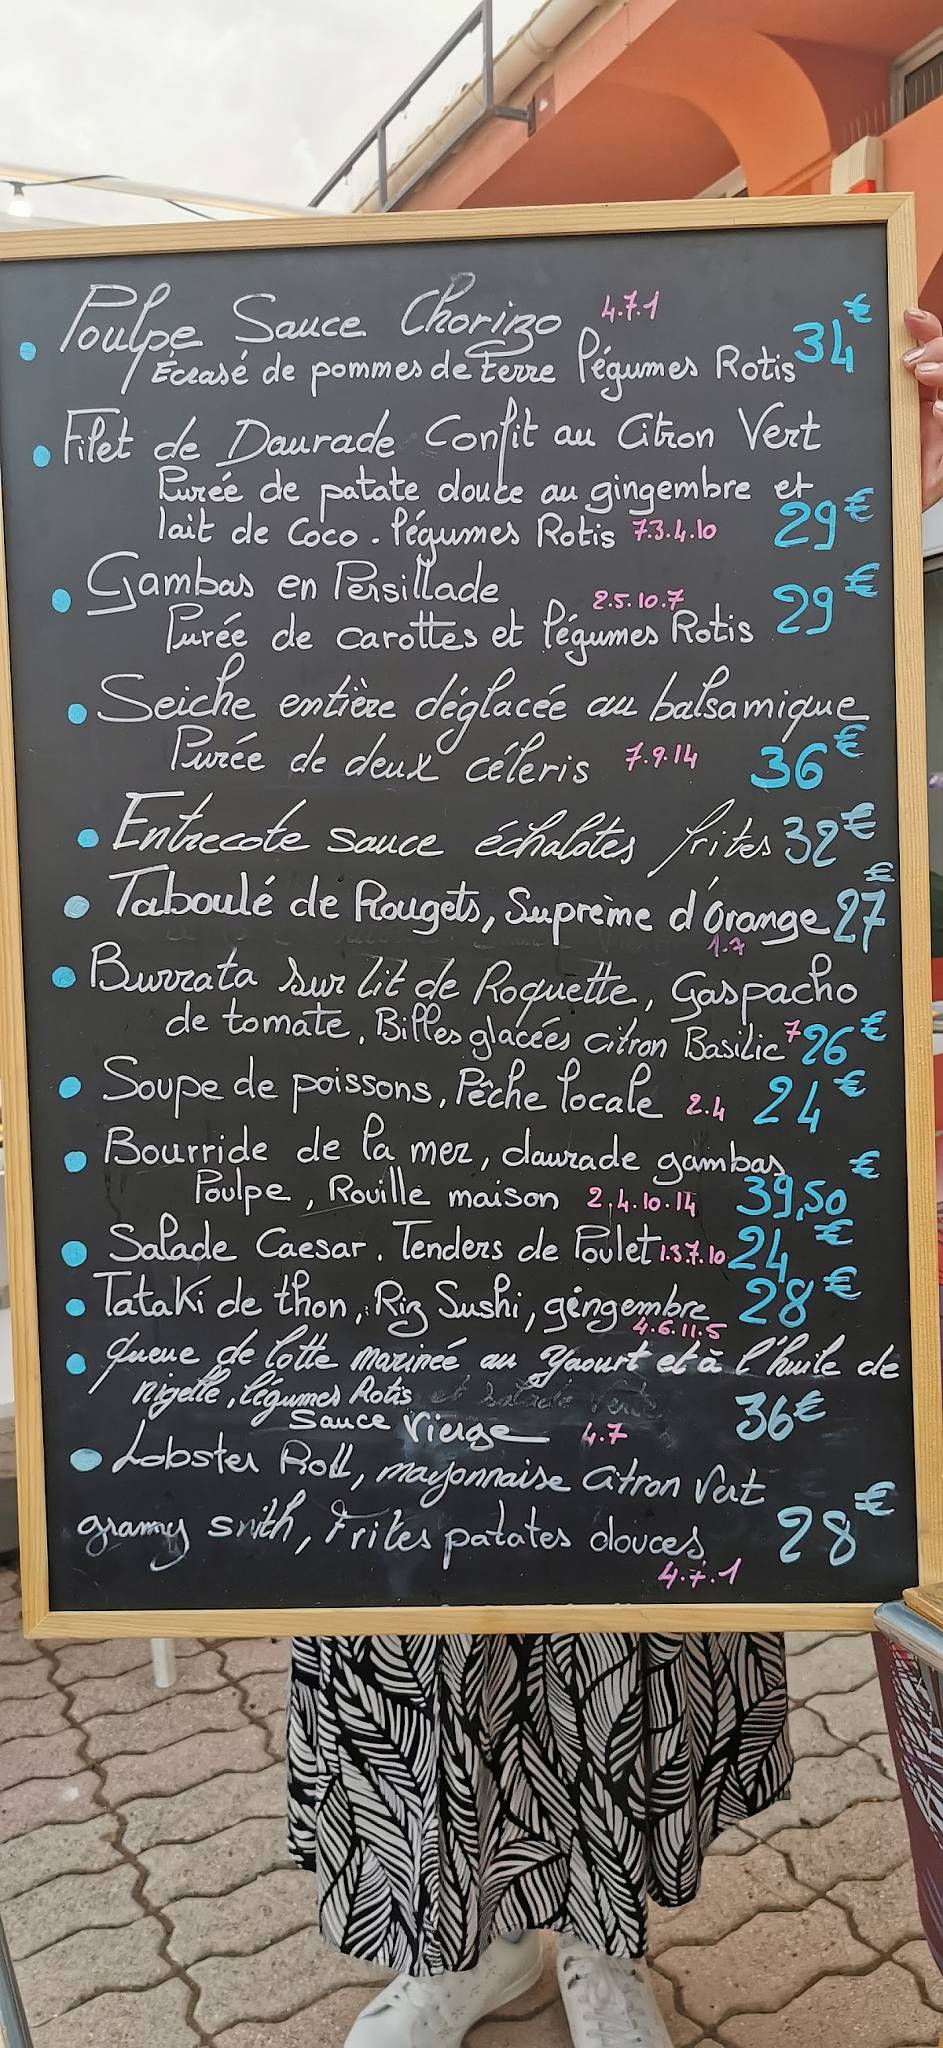 Poulpe Sauce Chorizo 4.7.1
Ecrasé de pommes de terre légumes Rotis 34€
Filet de Daurade Confit au Citron Vert
Purée de patate douce au gingembre et
lait de Coco . légumes Rotis 7.3.4.10 29€
Gambas en Persillade 2.5.10.7
Purée de carottes et légumes Rotis 29€
Seiche entière déglacée au balsamique
Purée de deux céleris 7.9.14 36€
Entrecote sauce échalotes frites 32€
Taboulé de Rougets, Suprème d'Orange 27€
1.7
Burrata sur lit de Roquette, Gaspacho
de tomate, Billes glacées citron Basilic 7 26€
Soupe de poissons, Pêche locale 2.4 24€
Bourride de la mer, daurade gambas
Poulpe, Rouille maison 2.4.10.14 39,50€
Salade Caesar. Tenders de Poulet 1.3.7.10 24€
Tataki de thon, Riz Sushi, gingembre 28€
4.6.11.5
Queue de lotte marinée au Yaourt et à l'huile de
nigelle, légumes Rotis
Sauce Vierge 4.7 36€
Lobster Roll, mayonnaise citron Vert
granny smith, Frites patates douces 28€
4.7.1